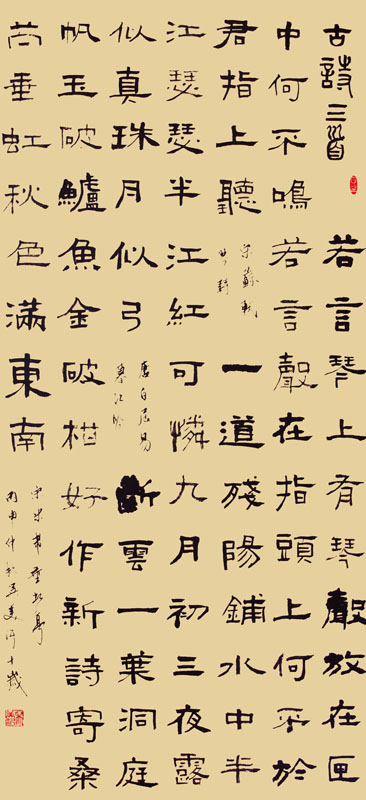 古詩三首 若言琴上有琴聲放在匣
中何不鳴若言聲在指頭上何不於
君指上聽
宋蘇軾
琴詩
一道殘陽鋪水中半
江瑟瑟半江紅可憐九月初三夜露
似真珠月似弓
唐白居易
暮江吟
斷雲一葉洞庭
帆玉破鱸魚金破柑好作新詩寄桑
苧垂虹秋色滿東南
宋米芾垂虹亭
丙申仲秋
十歲